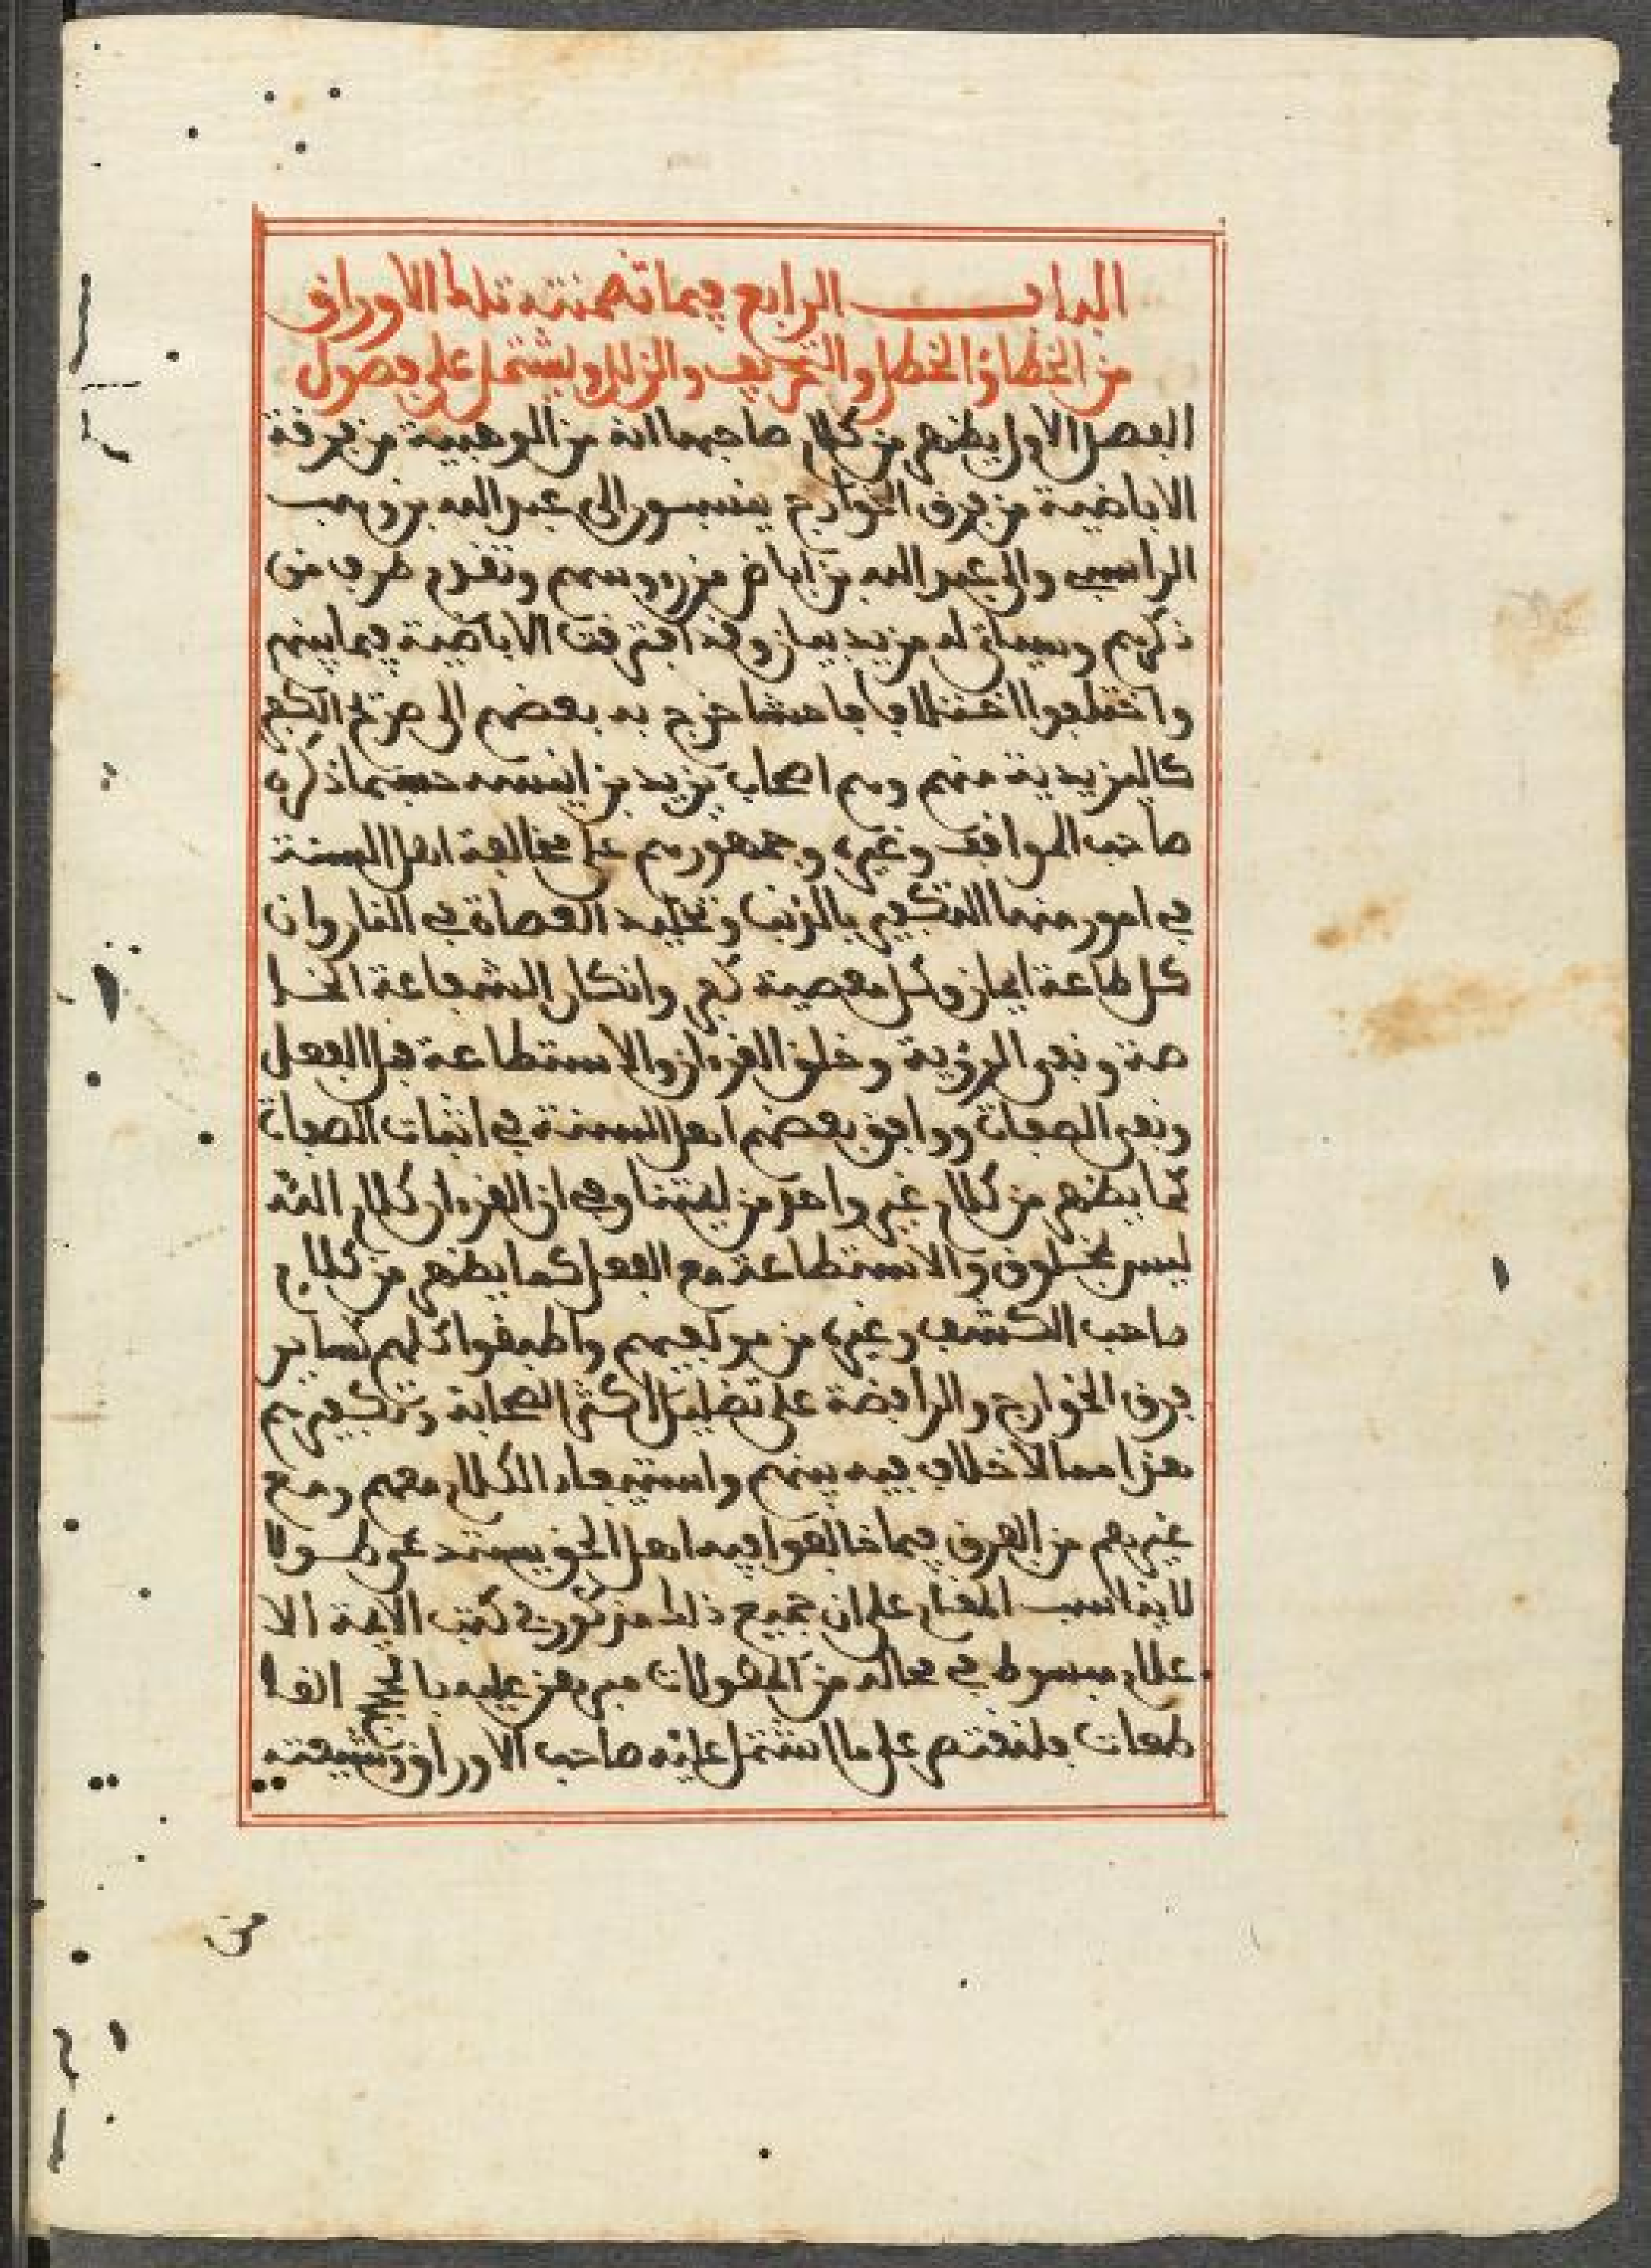 الباب الرابع فيما تضمنته تلك الاوراق
من الخطا والخطل والتحريف والزلل ويشتمل على فصول
الفصل الاول يظهر من كلام صاحبها انه من الوهبية من فرقة
الاباضية من فرق الخوارج ينسبون الى عبد الله بن وهب
الراسبي والى عبد الله بن اباض من رءوسهم وتقدم طرف من
ذكرهم وسياتي له مزيد بيان وقد افترقت الاباضية فيما بينهم
واختلفوا اختلافا فاحشا خرج به بعضهم الى صريح الكفر
كاليزيدية منهم وهم اصحاب يزيد بن انيسه حسبما ذكره
صاحب المواقف وغيره وجمهورهم على مخالفة اهل السنة
في امور منها التكفير بالذنب وتخليد العصاة في النار وان
كل طاعة ايمان وكل معصية كفر وانكار الشفاعة الخا
صة ونفي الرؤية وخلق القرءان والاستطاعة قبل الفعل
ونفي الصفات ووافق بعضهم اهل السنة في اثبات الصفات
كما يظهر من كلام غير واحد من ايمتنا وفي ان القرءان كلام الله
ليس بمخلوق والاستطاعة مع الفعل كما يظهر من كلام
صاحب الكشف وغيره من مولفيهم واطبقوا كلهم كساير
فرق الخوارج والرافضة على تضليل اكثر الصحابة وتكفيرهم
هذا مما لا خلاف فيه بينهم واستيعاب الكلام معهم ومع
غيرهم من الفرق فيما خالفوا فيه اهل الحق يستدعي طولا
لا يناسب المقام على ان جميع ذلك مذكور في كتب الايمة الا
علام مبسوط في محاله من المطولات مبرهن عليه انقا
طعات فلنقتصر على ما اشتمل عليه صاحب الاوراق وشيعته
من